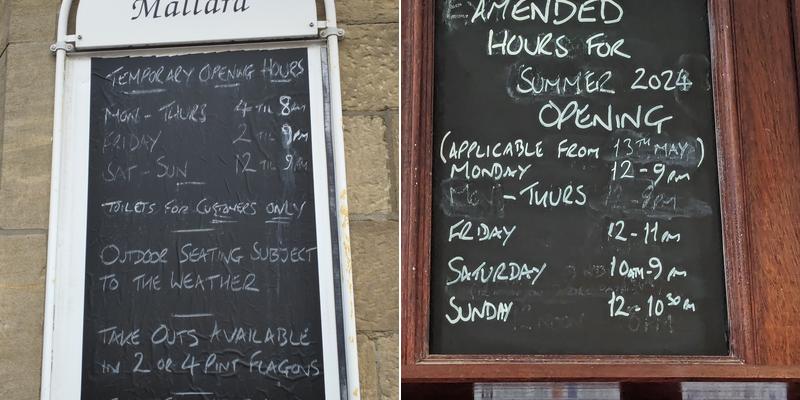 Mallard
TEMPORARY OPENING HOURS
MON - THURS 4 TIL 8PM
FRIDAY 2 TIL 9PM
SAT - SUN 12 TIL 9PM
TOILETS FOR CUSTOMERS ONLY
OUTDOOR SEATING SUBJECT
TO THE WEATHER
TAKE OUTS AVAILABLE
IN 2 OR 4 PINT FLAGONS
AMENDED
HOURS FOR
SUMMER 2024
OPENING
(APPLICABLE FROM 13TH MAY)
MONDAY 12-9PM
MON - THURS 12-9PM
FRIDAY 12-11PM
SATURDAY 10AM-9PM
SUNDAY 12-1030PM